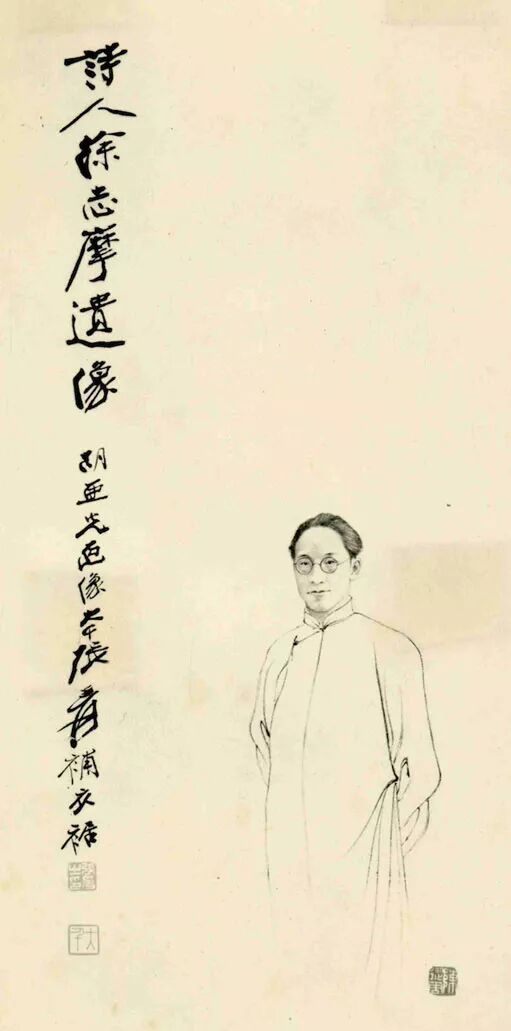 詩人徐志摩遺像
胡亞光画像大千張爰補衣裾
大千